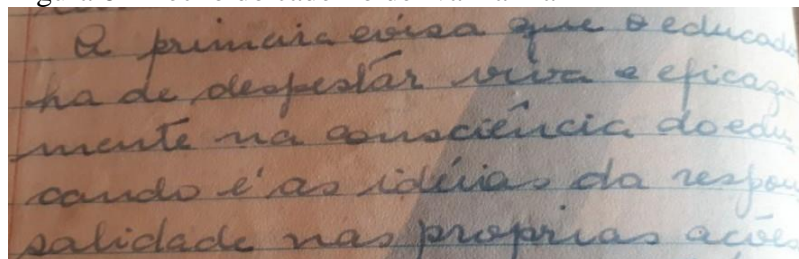 A primeira coisa que o educado
ha de despestar viva e eficaz-
mente na consciência do edu
cando e' as idéias da respon
salidade nas proprias acões